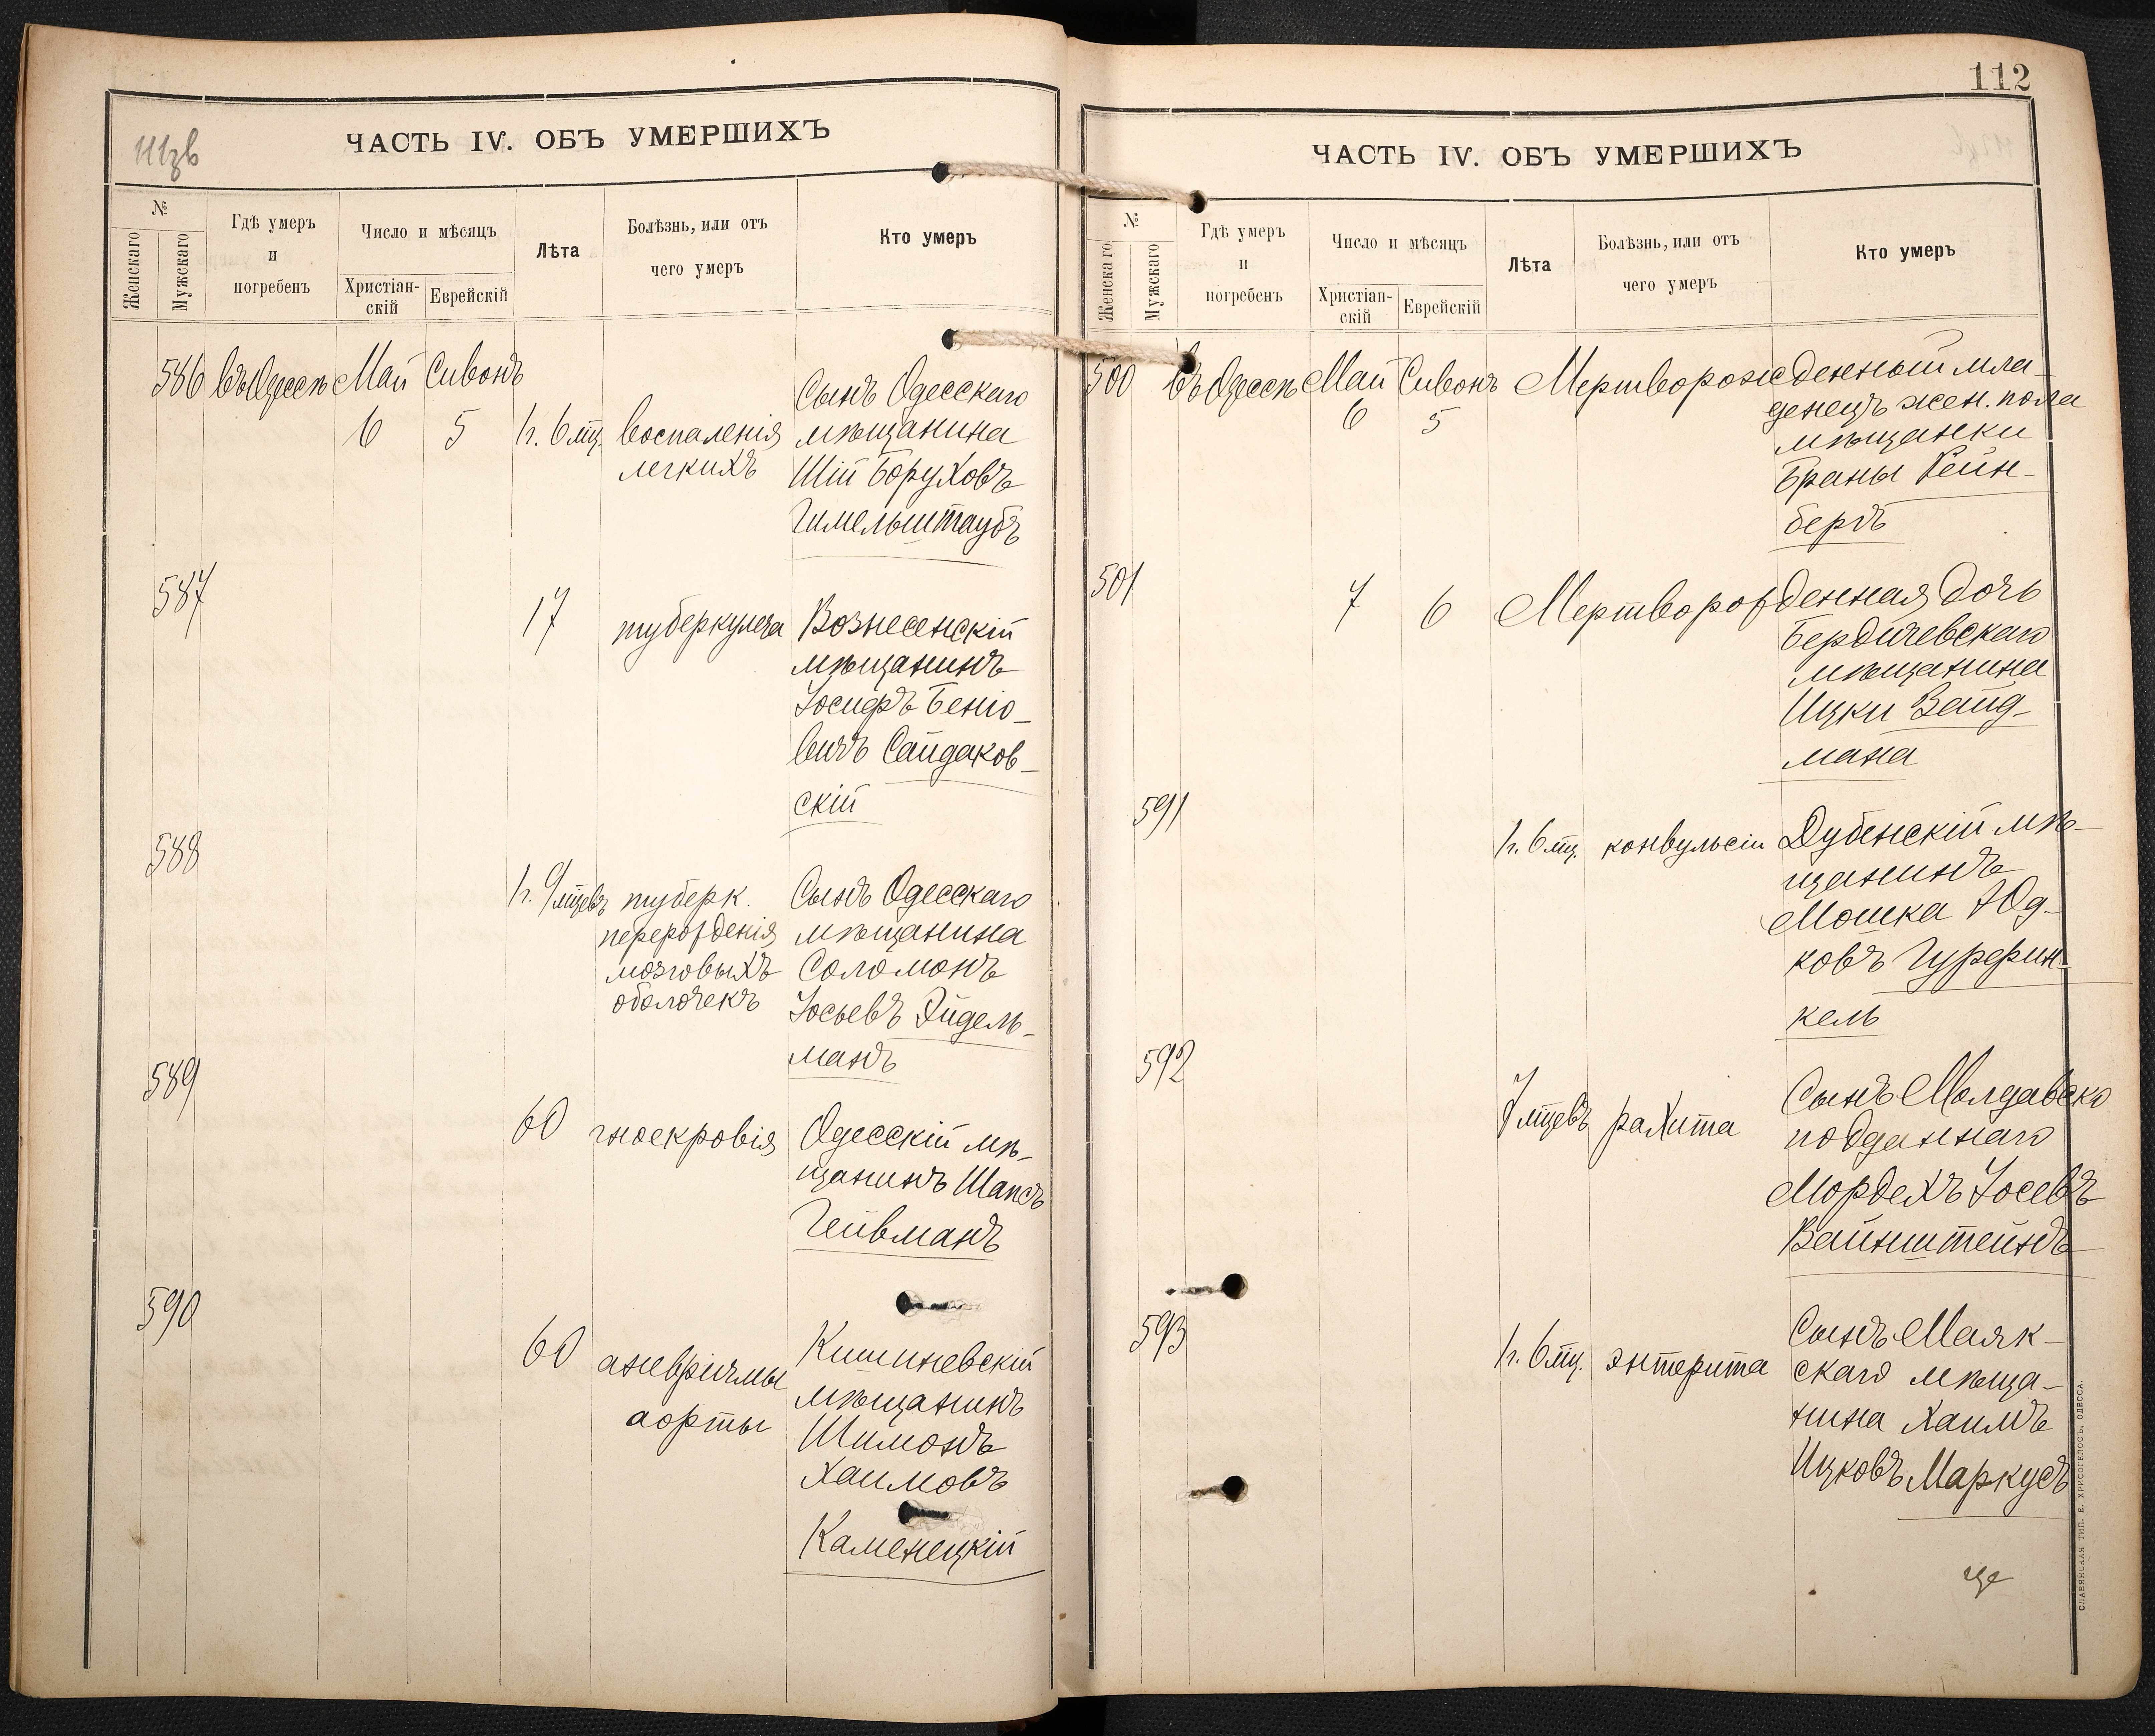 ЧАСТЬ IV. ОБЪ УМЕРШИХЪ
№
Женскаго
Мужскаго
Гдѣ умеръ
и
погребенъ
Число и мѣсяцъ
Христіан-
скій
Еврейскій
Лѣта
Болѣзнь, или отъ
чего умеръ
Кто умеръ
586 въ Одессѣ Май Сивонъ
6 5 1 г. 6 мц. воспаленія
легкихъ
Сынъ Одесскаго
мѣщанина
Шій Боруховъ
Гимельштаубъ
587
17 туберкулеза
Вознесенскій
мѣщанинъ
Іосифъ Беніо-
вичъ Сайдаков-
скій
588
1 г. 9 мцевъ туберк.
перерожденія
мозговыхъ
оболочекъ
Сынъ Одесскаго
мѣщанина
Соломонъ
Іосьевъ Эйдель-
манъ
589
60 гноекровія
Одесскій мѣ-
щанинъ Шапсъ
Гейвманъ
590
60 аневризмы
аорты
Кишиневскій
мѣщанинъ
Шимонъ
Хаимовъ
Каменецкій
112
ЧАСТЬ IV. ОБЪ УМЕРШИХЪ
№
Женскаго
Мужскаго
Гдѣ умеръ
и
погребенъ
Число и мѣсяцъ
Христіан-
скій
Еврейскій
Лѣта
Болѣзнь, или отъ
чего умеръ
Кто умеръ
500 въ Одессѣ Май Сивонъ Мертворожденный мла-
6 5
денецъ жен. пола
мѣщанки
Браны Рейн-
бергъ
501
7 6 Мертворожденная дочь
Бердичевскаго
мѣщанина
Ицки Вайд-
мана
591
1 г. 6 мц. конвульсіи Дубенскій мѣ-
щанинъ
Мошка Юд-
ковъ Гурфин-
кель
592
7 мцевъ рахита
Сынъ Молдавско
подданнаго
Мордехъ Іосевъ
Вайнштейнъ
593
1 г. 6 мц. энтерита
Сынъ Маяк-
скаго мѣща-
нина Хаимъ
Ицковъ Маркусъ
СЛАВЯНСКАЯ ТИП. Е. ХРИСОГЕЛОСЪ, ОДЕССА.